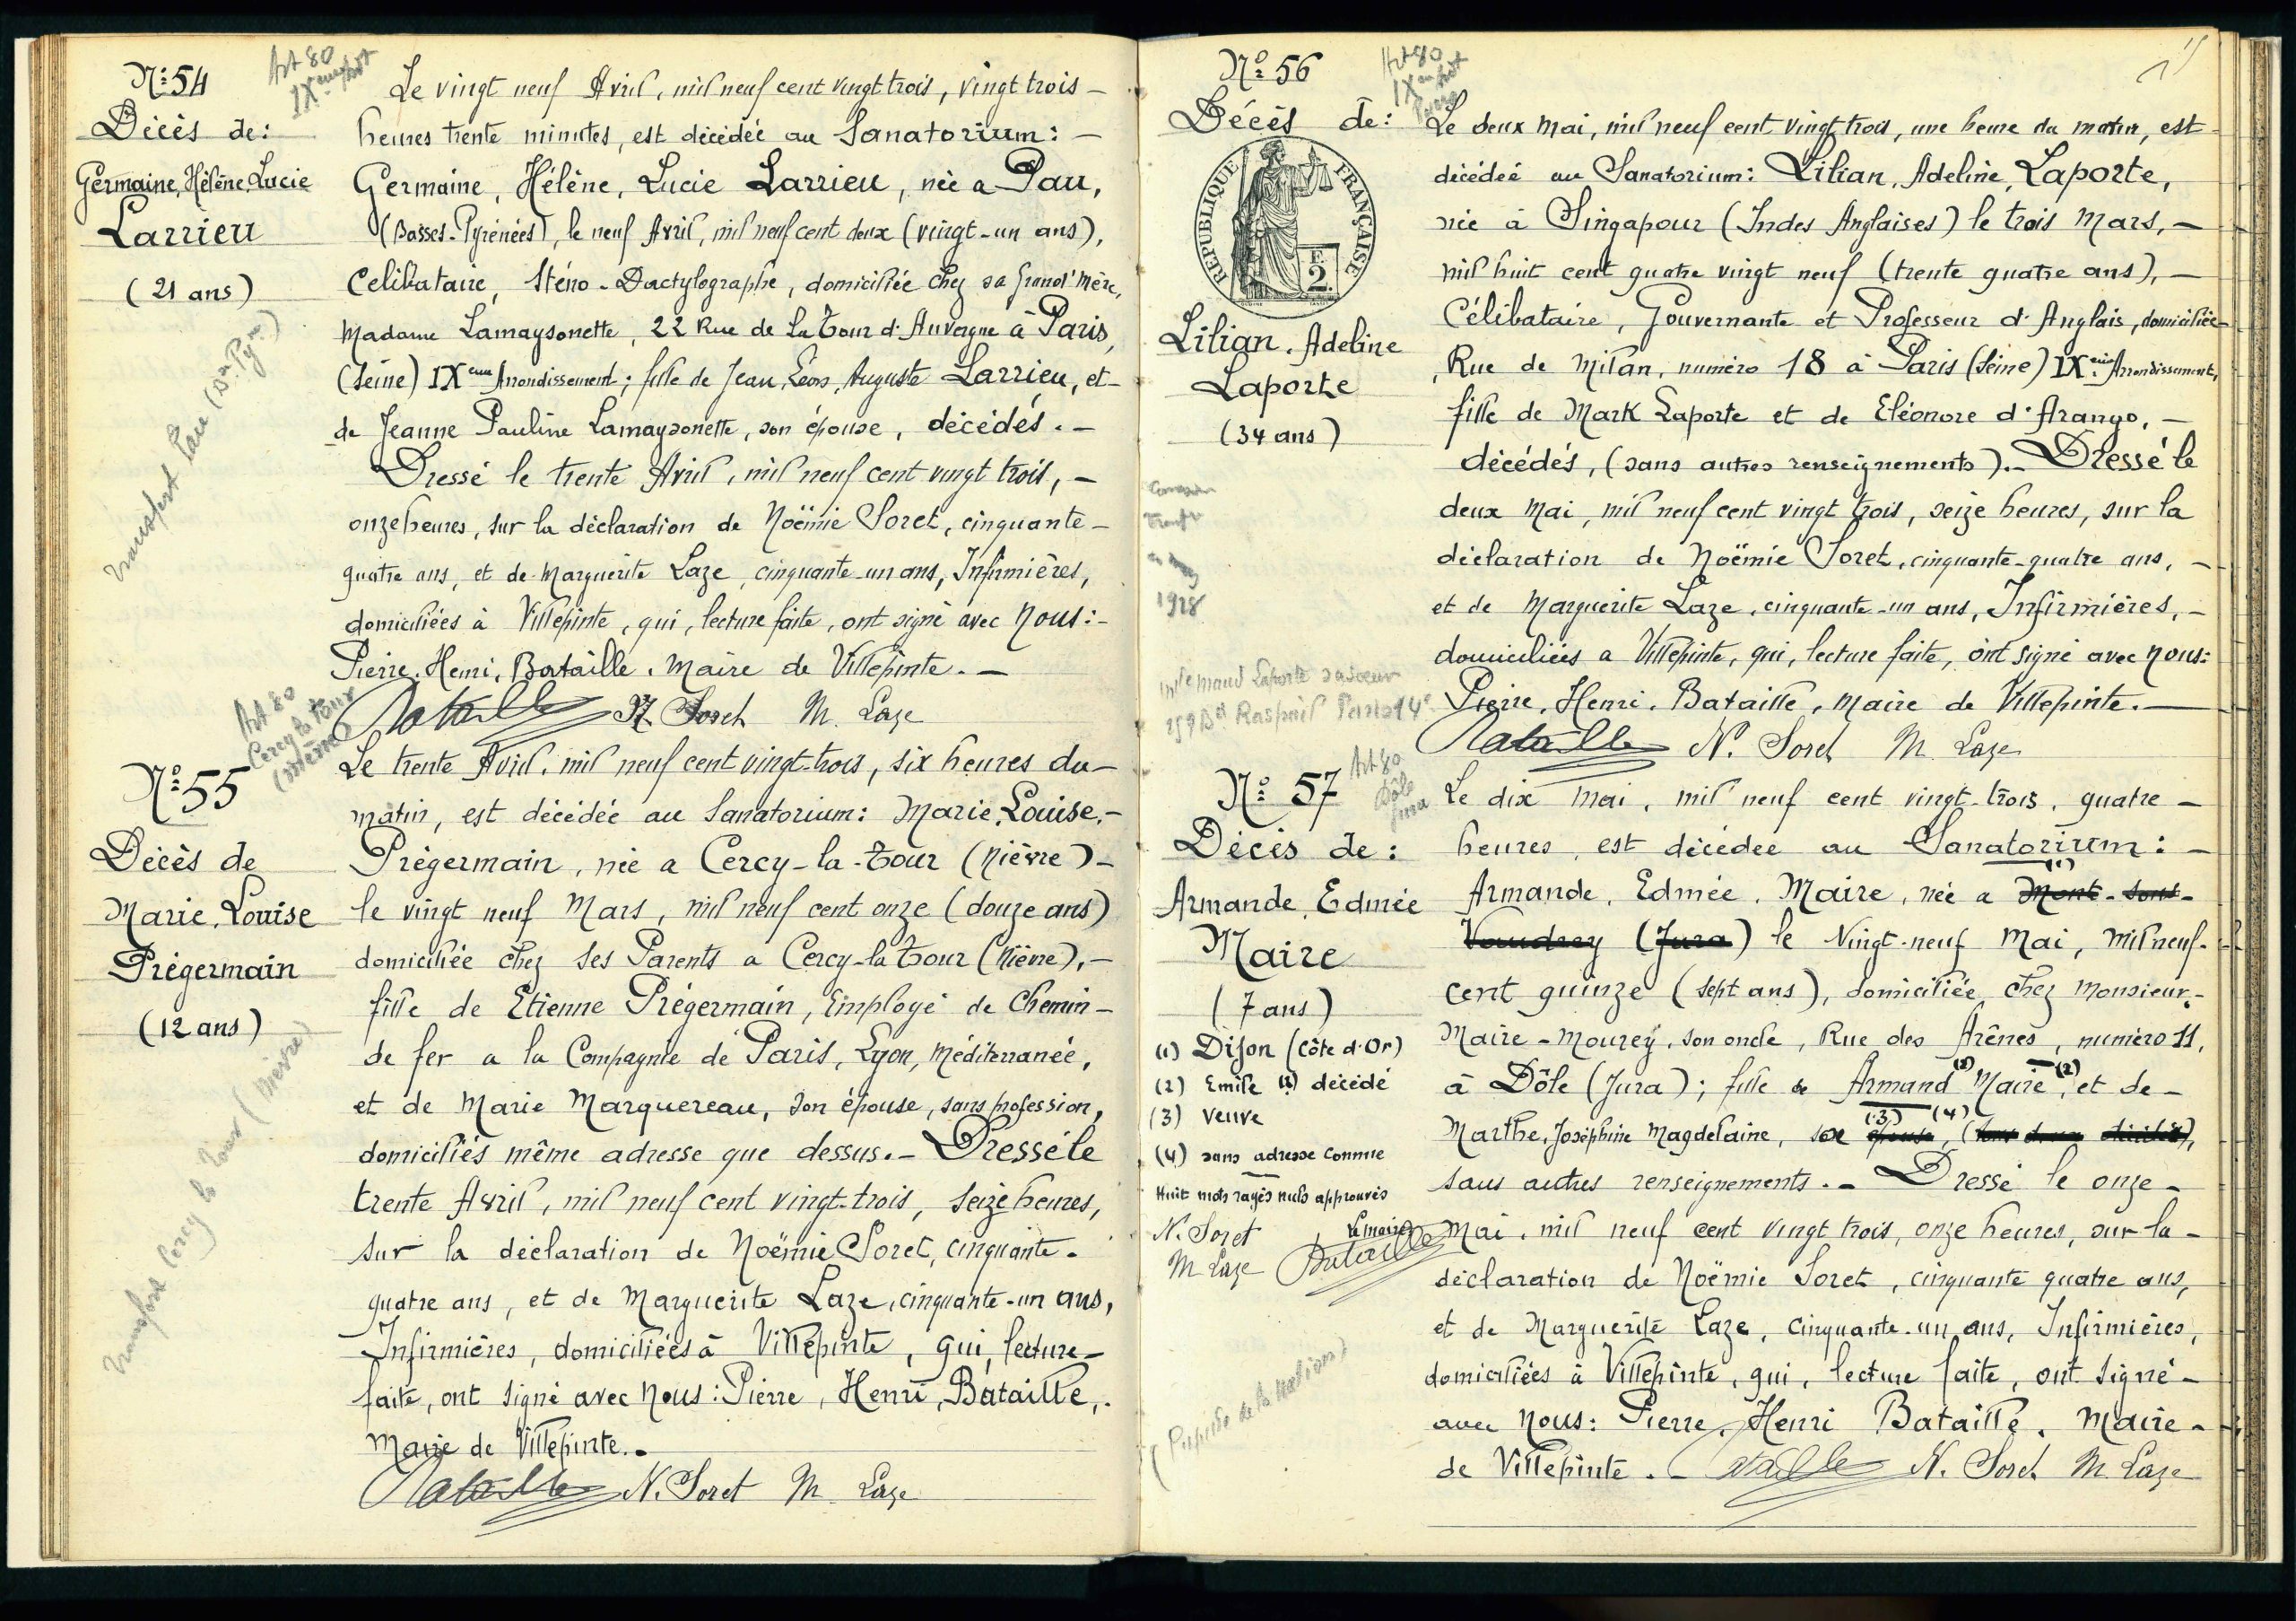 N° 54
Art 80
IXème
Décès de:
Germaine, Hélène, Lucie
Larrieu
(21 ans)
Transfert Pau (Bses Pyr.)
Le vingt neuf Avril, mil neuf cent vingt trois, vingt trois –
heures trente minutes, est décédée au Sanatorium: –
Germaine, Hélène, Lucie Larrieu, née a Pau,
(Basses-Pyrénées), le neuf Avril, mil neuf cent deux (vingt-un ans),
Celibataire, Sténo-Dactylographe, domiciliée chez sa Grand'Mère,
Madame Lamaysonette, 22 Rue de La Tour d'Auvergne à Paris,
(Seine) IXème Arrondissement; fille de Jean, Léon, Auguste Larrieu, et –
de Jeanne Pauline Lamaysonette, son épouse, décédés. –
Dressé le trente Avril, mil neuf cent vingt trois, –
onze heures, sur la déclaration de Noëmie Soret, cinquante –
quatre ans, et de Marguerite Laze, cinquante-un ans, Infirmières,
domiciliées à Villepinte, qui, lecture faite, ont signé avec Nous: –
Pierre, Henri, Bataille, Maire de Villepinte. –
Bataille N. Soret M. Laze
N° 55
Art 80
Cercy la Tour
(Nièvre)
Décès de
Marie, Louise
Prégermain
(12 ans)
Transfert Cercy la Tour (Nièvre)
Le trente Avril, mil neuf cent vingt-trois, six heures du –
matin, est décédée au Sanatorium: Marie, Louise, –
Prégermain, née a Cercy-la-Tour (Nièvre) –
le vingt neuf Mars, mil neuf cent onze (douze ans)
domiciliée chez ses Parents a Cercy-la-Tour (Nièvre), –
fille de Etienne Prégermain, Employé de Chemin –
de fer a la Compagnie de Paris, Lyon, Méditerranée,
et de Marie Marquereau, son épouse, sans profession,
domiciliés même adresse que dessus. – Dressé le
trente Avril, mil neuf cent vingt-trois, seize heures,
sur la déclaration de Noëmie Soret, cinquante –
quatre ans, et de Marguerite Laze, cinquante-un ans,
Infirmières, domiciliées à Villepinte, qui, lecture –
faite, ont signé avec Nous: Pierre, Henri, Bataille, .
Maire de Villepinte. –
Bataille N. Soret M. Laze
N° 56
Art 80
IXème
Paris
Décès de:
RÉPUBLIQUE FRANÇAISE
F. 2.
Lilian, Adeline
Laporte
(34 ans)
1928
Mlle Maud Laporte sa soeur
259 Bd Raspail Paris 14e
Le deux Mai, mil neuf cent vingt trois, une heure du matin, est –
décédée au Sanatorium: Lilian, Adeline, Laporte,
née à Singapour (Indes Anglaises) le trois Mars, –
mil huit cent quatre vingt neuf (trente quatre ans), –
Célibataire, Gouvernante et Professeur d'Anglais, domiciliée –
Rue de Milan, numéro 18 à Paris (Seine) IXème Arrondissement,
fille de Mark Laporte et de Eléonore d'Arango, –
décédés, (sans autres renseignements). – Dressé le
deux Mai, mil neuf cent vingt trois, seize heures, sur la
déclaration de Noëmie Soret, cinquante-quatre ans, –
et de Marguerite Laze, cinquante-un ans, Infirmières, –
domiciliées a Villepinte, qui, lecture faite, ont signé avec Nous:
Pierre, Henri, Bataille, Maire de Villepinte. –
Bataille N. Soret M. Laze
N° 57
Art 80
Dôle
Jura
Décès de:
Armande, Edmée
Maire
(7 ans)
(1) Dijon (Côte d'Or)
(2) Emile (2) décédé
(3) Veuve
(4) sans adresse connue
Huit mots rayés nuls approuvés
N. Soret Le maire
M Laze Bataille
(Pupille de la Nation)
Le dix Mai, mil neuf cent vingt-trois, quatre –
heures, est décédée au Sanatorium: –
(1)
Armande, Edmée, Maire, née a Mont-sous-
Vaudrey (Jura) le Vingt-neuf Mai, mil neuf –
cent quinze (sept ans), domiciliée chez Monsieur –
Maire-Mourey, son oncle, Rue des Arênes, numéro 11,
à Dôle (Jura); fille de Armand (2) Maire (2), et de –
(3) (4)
Marthe, Joséphine Magdelaine, son épouse, (tous deux décédés),
sans autres renseignements. – Dressé le onze –
Mai, mil neuf cent vingt trois, onze heures, sur la –
déclaration de Noëmie Soret, cinquante quatre ans,
et de Marguerite Laze, cinquante-un ans, Infirmières,
domiciliées à Villepinte, qui, lecture faite, ont signé –
avec Nous: Pierre, Henri Bataille, Maire –
de Villepinte. – Bataille N. Soret M. Laze